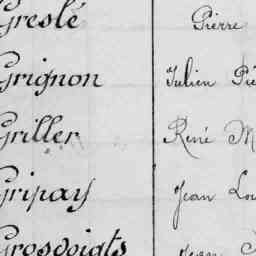 Greslé Pierre
Grignon Julien Pie
Griller René M
Gripay Jean Lou
Grosdoigts Jean